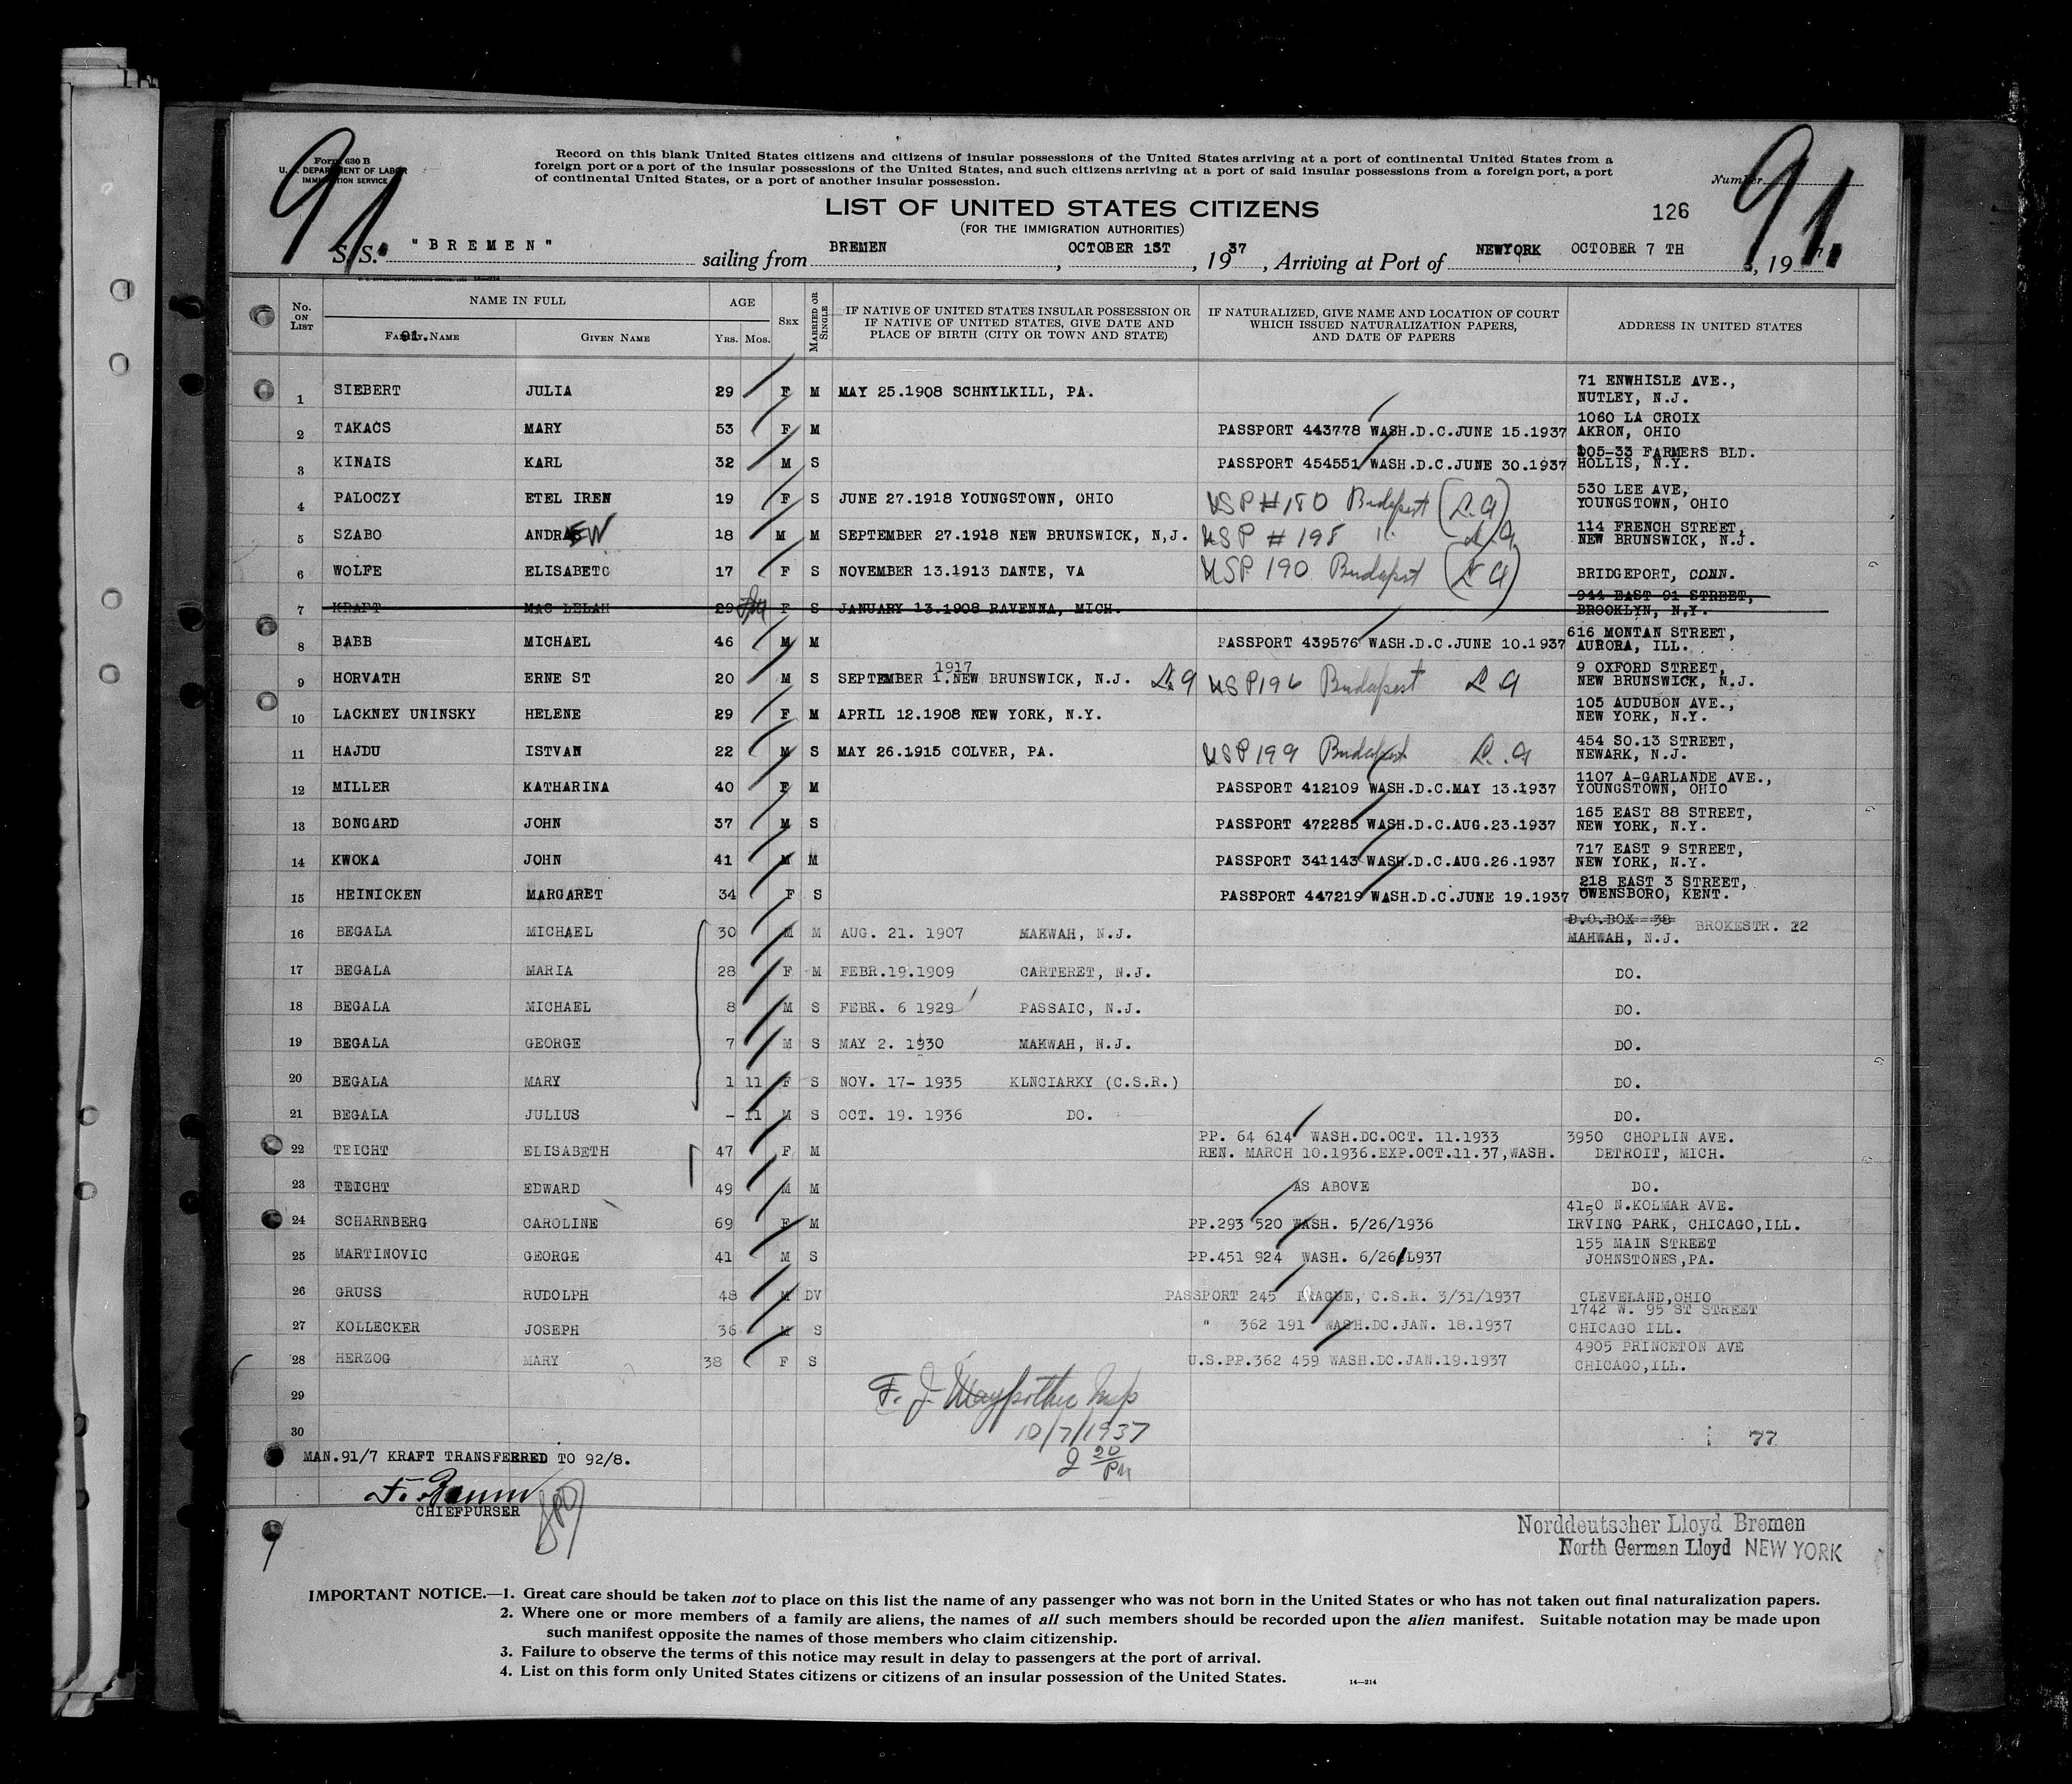 91 91
Form 630 B
U. S. DEPARTMENT OF LABOR
IMMIGRATION SERVICE
Record on this blank United States citizens and citizens of insular possessions of the United States arriving at a port of continental United States from a
foreign port or a port of the insular possessions of the United States, and such citizens arriving at a port of said insular possessions from a foreign port, a port
of continental United States, or a port of another insular possession.
Number
LIST OF UNITED STATES CITIZENS
126
(FOR THE IMMIGRATION AUTHORITIES)
S. S. "BREMEN" sailing from BREMEN, OCTOBER 1ST, 1937, Arriving at Port of NEWYORK OCTOBER 7 TH, 1937
No. ON LIST NAME IN FULL AGE SEX MARRIED OR SINGLE IF NATIVE OF UNITED STATES INSULAR POSSESSION OR IF NATIVE OF UNITED STATES, GIVE DATE AND PLACE OF BIRTH (CITY OR TOWN AND STATE) IF NATURALIZED, GIVE NAME AND LOCATION OF COURT WHICH ISSUED NATURALIZATION PAPERS, AND DATE OF PAPERS ADDRESS IN UNITED STATES
91. FAMILY NAME GIVEN NAME YRS. MOS.
1 SIEBERT JULIA 29 F M MAY 25.1908 SCHNYLKILL, PA. 71 ENWHISLE AVE., NUTLEY, N.J.
2 TAKACS MARY 53 F M PASSPORT 443778 WASH.D.C.JUNE 15.1937 1060 LA CROIX AKRON, OHIO
3 KINAIS KARL 32 M S PASSPORT 454551 WASH.D.C.JUNE 30.1937 105-33 FARMERS BLD. HOLLIS, N.Y.
4 PALOCZY ETEL IREN 19 F S JUNE 27.1918 YOUNGSTOWN, OHIO USP #180 Budapest (L.A) 530 LEE AVE, YOUNGSTOWN, OHIO
5 SZABO ANDREW 18 M M SEPTEMBER 27.1918 NEW BRUNSWICK, N,J. USP #198 " 114 FRENCH STREET, NEW BRUNSWICK, N.J.
6 WOLFE ELISABETC 17 F S NOVEMBER 13.1913 DANTE, VA USP 190 Budapest (L A) BRIDGEPORT, CONN.
7 KRAFT MAC LELAH 29 F S JANUARY 13.1908 RAVENNA, MICH. 944 EAST 91 STREET, BROOKLYN, N.Y.
8 BABB MICHAEL 46 M M PASSPORT 439576 WASH.D.C.JUNE 10.1937 616 MONTAN STREET, AURORA, ILL.
9 HORVATH ERNE ST 20 M S SEPTEMBER 1.1917 NEW BRUNSWICK, N.J. USP 196 Budapest L A 9 OXFORD STREET, NEW BRUNSWICK, N.J.
10 LACKNEY UNINSKY HELENE 29 F M APRIL 12.1908 NEW YORK, N.Y. 105 AUDUBON AVE., NEW YORK, N.Y.
11 HAJDU ISTVAN 22 M S MAY 26.1915 COLVER, PA. USP 199 Budapest L.A 454 SO.13 STREET, NEWARK, N.J.
12 MILLER KATHARINA 40 F M PASSPORT 412109 WASH.D.C.MAY 13.1937 1107 A-GARLANDE AVE., YOUNGSTOWN, OHIO
13 BONGARD JOHN 37 M S PASSPORT 472285 WASH.D.C.AUG.23.1937 165 EAST 88 STREET, NEW YORK, N.Y.
14 KWOKA JOHN 41 M M PASSPORT 341143 WASH.D.C.AUG.26.1937 717 EAST 9 STREET, NEW YORK, N.Y.
15 HEINICKEN MARGARET 34 F S PASSPORT 447219 WASH.D.C.JUNE 19.1937 218 EAST 3 STREET, OWENSBORO, KENT.
16 BEGALA MICHAEL 30 M M AUG. 21. 1907 MAKWAH, N.J. P.O.BOX 38 BROKESTR. 22 MAHWAH, N.J.
17 BEGALA MARIA 28 F M FEBR.19.1909 CARTERET, N.J. DO.
18 BEGALA MICHAEL 8 M S FEBR. 6 1929 PASSAIC, N.J. DO.
19 BEGALA GEORGE 7 M S MAY 2. 1930 MAKWAH, N.J. DO.
20 BEGALA MARY 1 11 F S NOV. 17- 1935 KLNCIARKY (C.S.R.) DO.
21 BEGALA JULIUS - 11 M S OCT. 19. 1936 DO. DO.
22 TEICHT ELISABETH 47 F M PP. 64 614 WASH.DC.OCT. 11.1933 REN. MARCH 10.1936.EXP.OCT.11.37,WASH. 3950 CHOPLIN AVE. DETROIT, MICH.
23 TEICHT EDWARD 49 M M AS ABOVE DO.
24 SCHARNBERG CAROLINE 69 F M PP.293 520 WASH. 5/26/1936 4150 N.KOLMAR AVE. IRVING PARK, CHICAGO,ILL.
25 MARTINOVIC GEORGE 41 M S PP.451 924 WASH. 6/26/1937 155 MAIN STREET JOHNSTONES,PA.
26 GRUSS RUDOLPH 48 M DV PASSPORT 245 PRAGUE, C.S.R. 3/31/1937 CLEVELAND,OHIO 1742 W. 95 ST STREET
27 KOLLECKER JOSEPH 36 M S " 362 191 WASH.DC.JAN. 18.1937 CHICAGO ILL.
28 HERZOG MARY 38 F S U.S.PP.362 459 WASH.DC.JAN.19.1937 4905 PRINCETON AVE CHICAGO,ILL.
29 F. J.
10/7/1937
30 77
2 20 PM
MAN.91/7 KRAFT TRANSFERRED TO 92/8.
CHIEFPURSER
Norddeutscher Lloyd Bremen
North German Lloyd NEW YORK
IMPORTANT NOTICE.—1. Great care should be taken not to place on this list the name of any passenger who was not born in the United States or who has not taken out final naturalization papers.
2. Where one or more members of a family are aliens, the names of all such members should be recorded upon the alien manifest. Suitable notation may be made upon
such manifest opposite the names of those members who claim citizenship.
3. Failure to observe the terms of this notice may result in delay to passengers at the port of arrival.
4. List on this form only United States citizens or citizens of an insular possession of the United States.
14—214